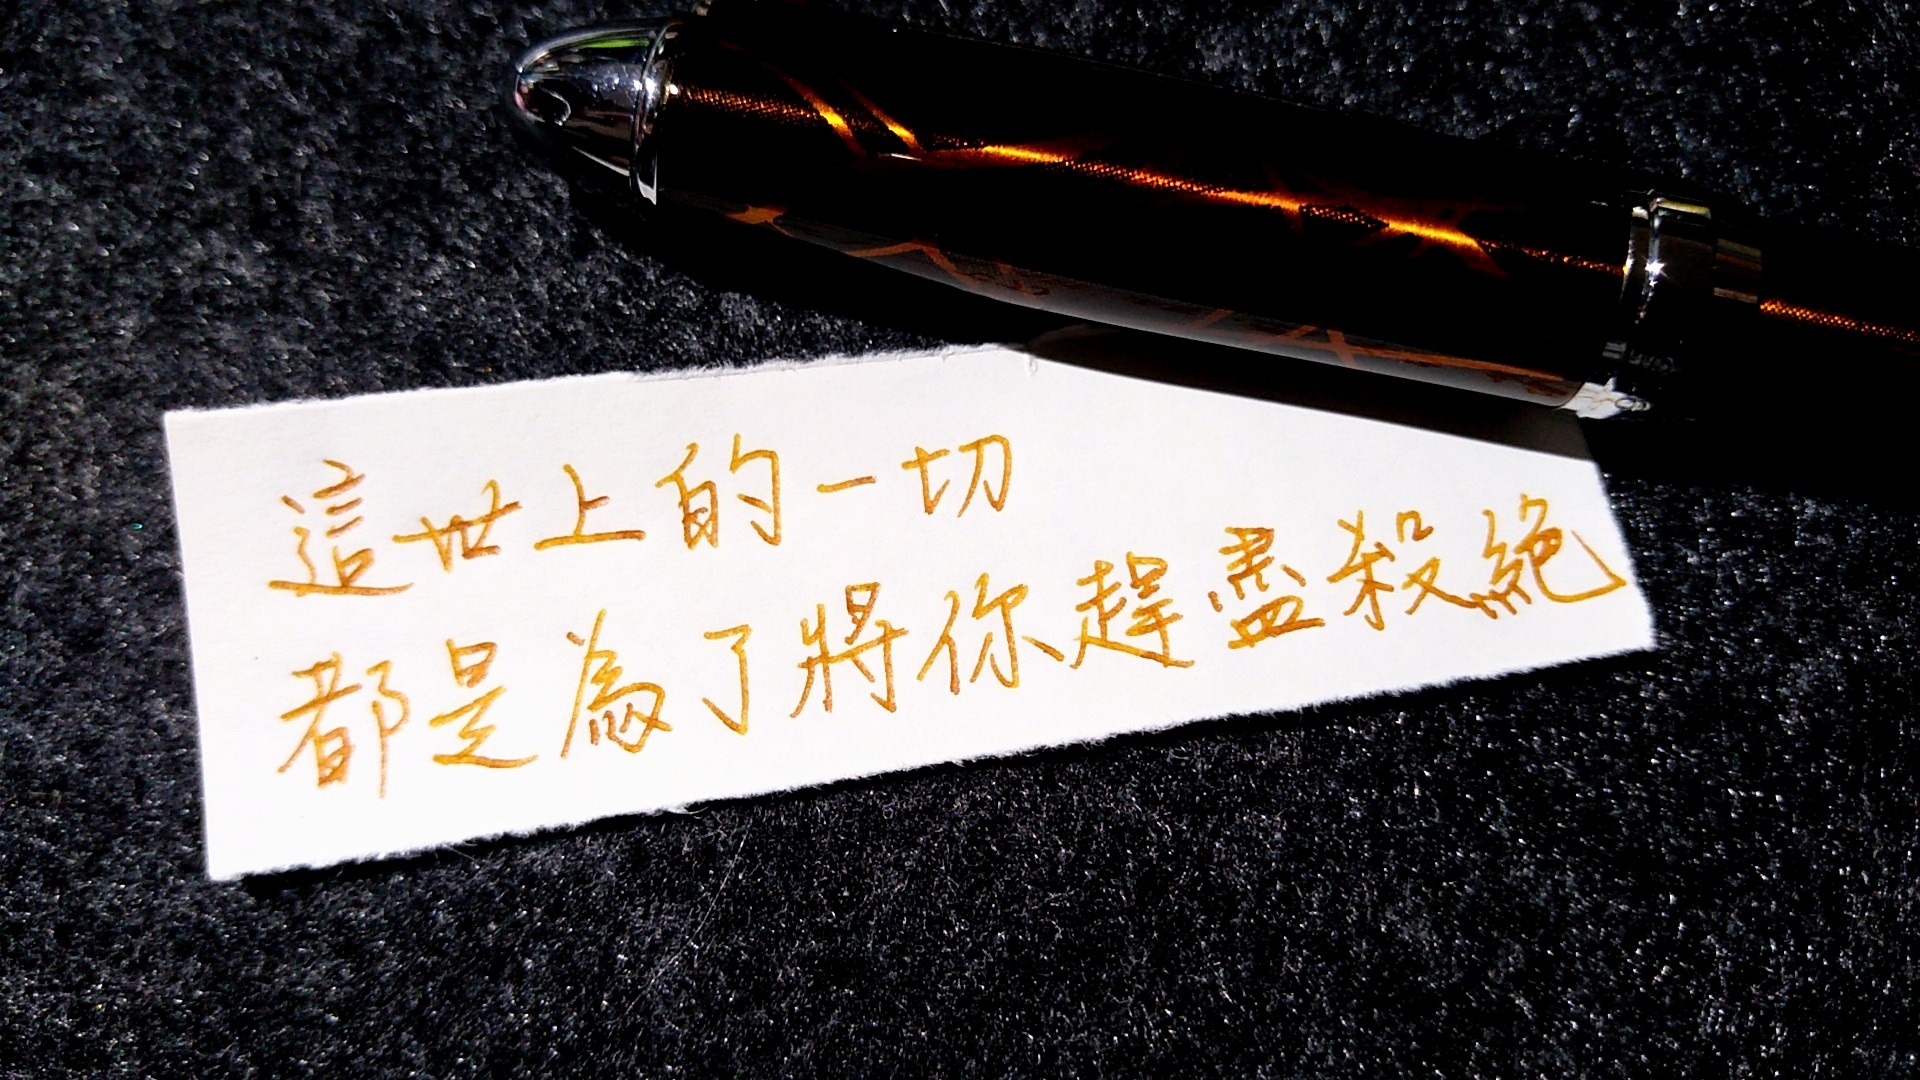 這世上的一切
都是為了將你趕盡殺絕